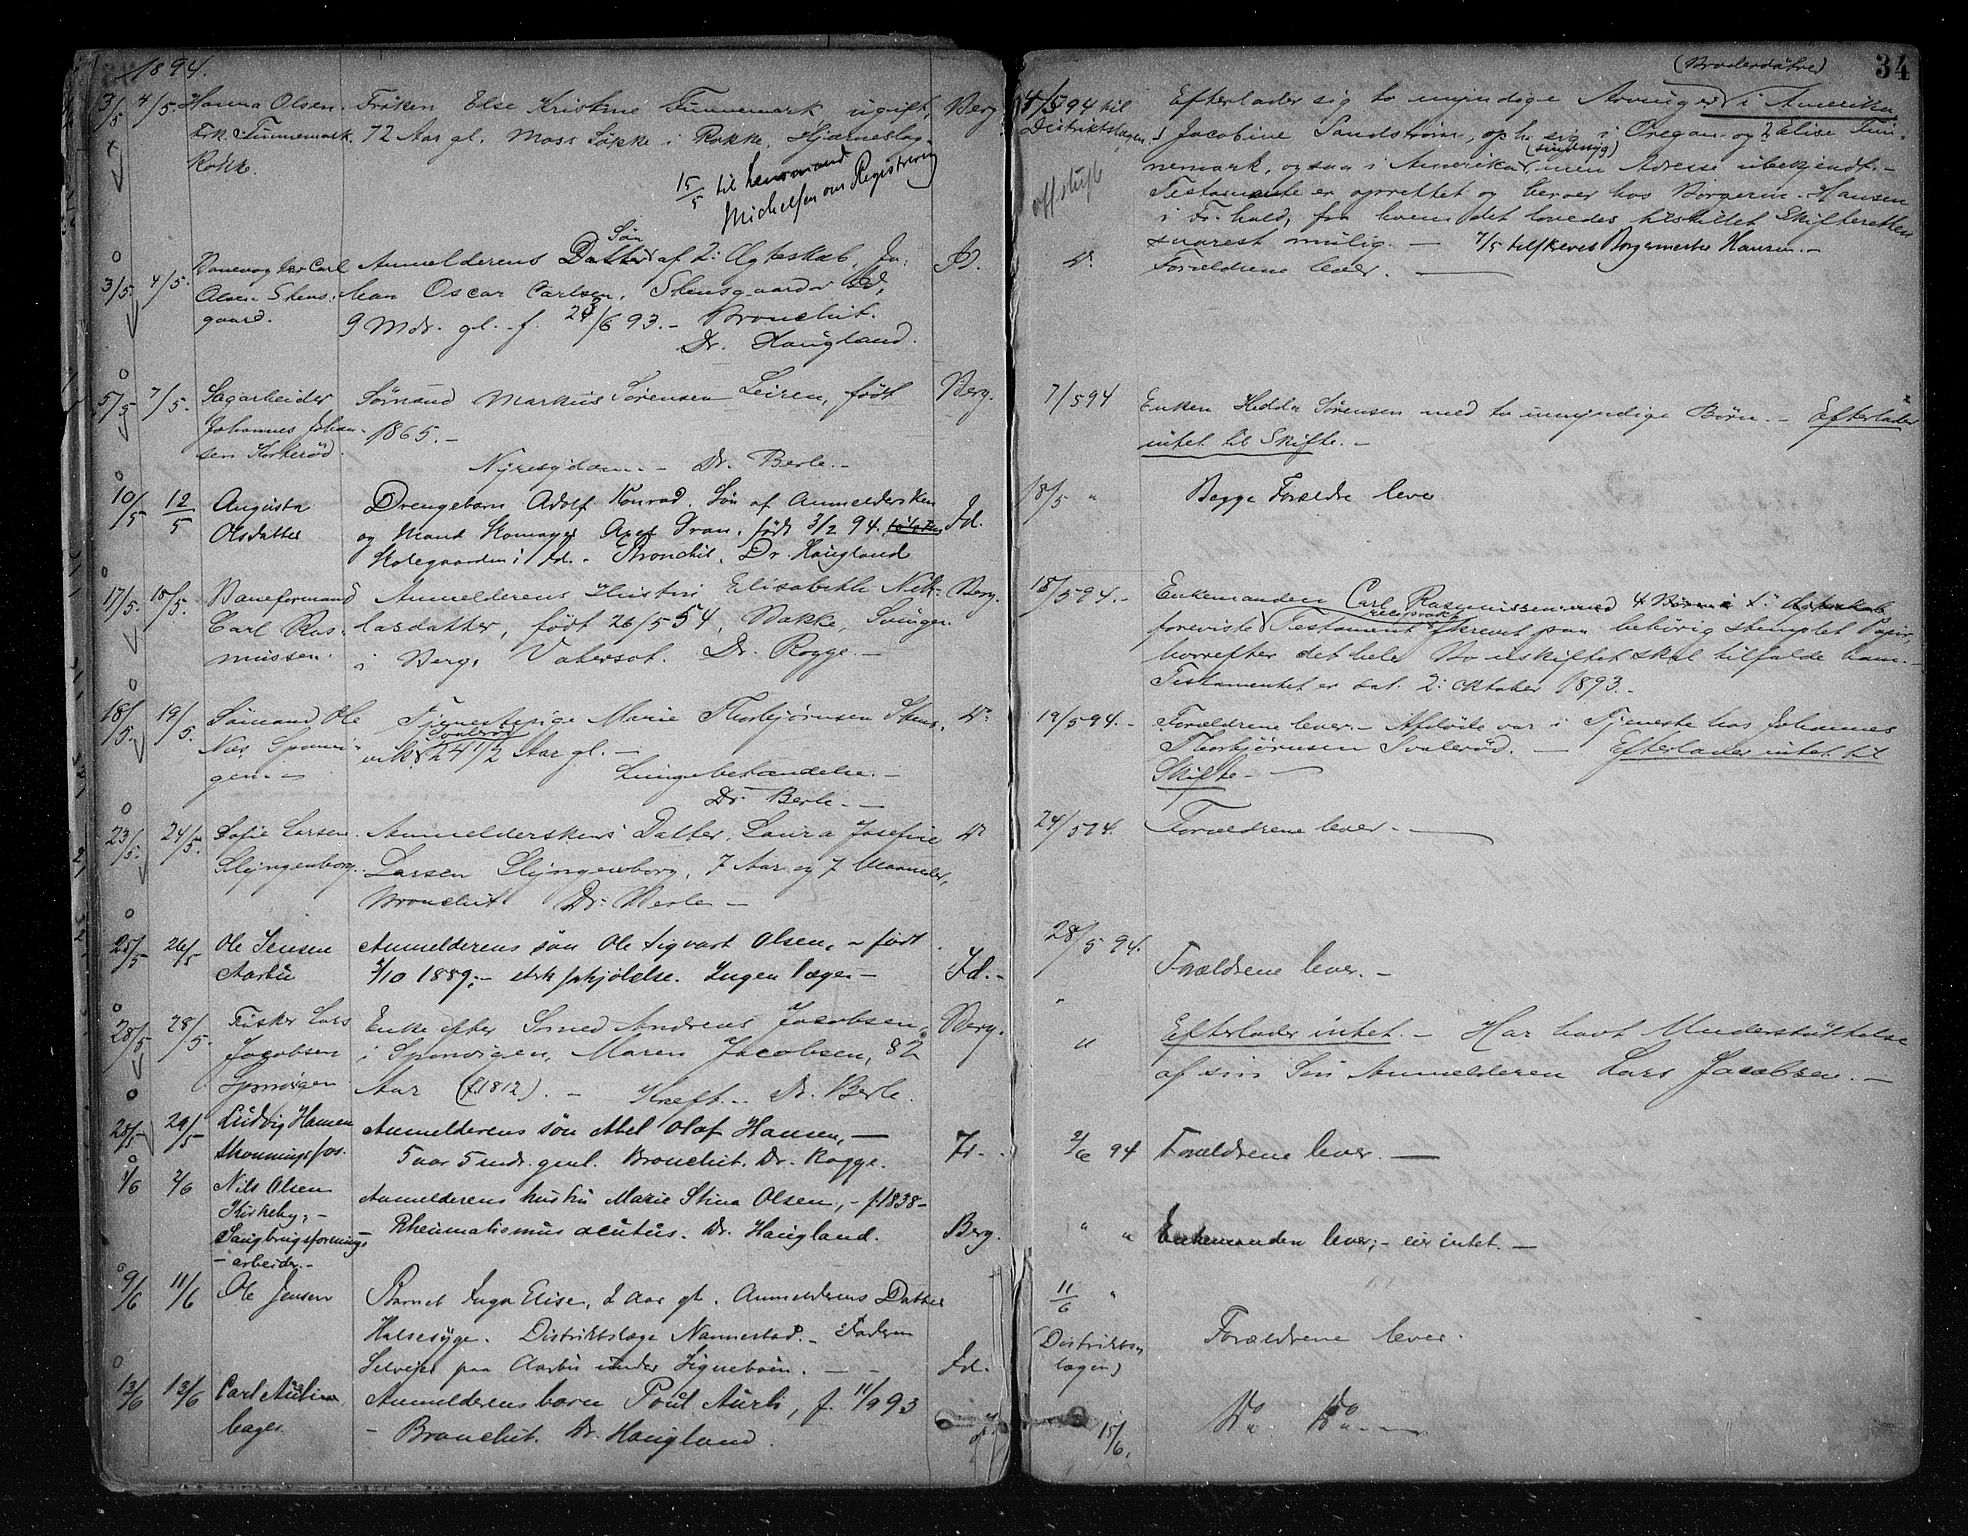 1894.
3/5 4/5. Hanna Olsen. Frøken Else Kristine Tunnemark, ugift, Berg
Frk. Tunnemark. 72 Aar gl. Moss Løkke i Rokke. Hjærneslag
Rokke.
15/5 til Lensmand
Michelsen om Registrering
Søn
Banevogter Carl Anmelderens Datter af 2: Ægteskab, Jo- Id.
3/5. 4/5. Olsen Stens- han Oscar Carlsen, Stensgaard Id,
gaard. 9 Mdr. gl. f. 24/6 93. - Bronchit.
Dr. Haugland.
5/5 7/5. Sagarbeider Sømand Markus Sørensen Leiren, født Berg.
Johannes Johan- 1865. -
sen Korkerød. Nyresygdom. - Dr. Berle. -
10/5 12/5 Augusta Drengebarn Adolf Konrad. Søn af Anmeldersken Id.
Olsdatter og Mand Skomager Axel Gran, født 3/2 94.
i Id. Bronchit. Dr. Haugland
17/5. 18/5. Baneformand Anmelderens Hustru Elisabeth Nik- Berg.
Carl Ras- lasdatter, født 26/5 54, Bakke,
mussen. i Berg, Vatersot. Dr. Rogge. -
18/5. 19/5. Sømand Ole Tjenestepige Marie Thorbjørnsen Stens- Do
Svalerød
Næs Sponvi- vik 24 1/2 Aar gl. -
gen. - Lungebetændelse. -
Dr. Berle. -
23/5. 24/5. Sofie Larsen Anmelderskens Datter, Laura Josefine Do
Slyngenborg. Larsen Slyngenborg, 7 Aar og 7 Maaneder,
Bronchit Dr. Berle -
25/5 26/5 Ole Jensen Anmelderens søn Ole Sigvart Olsen, - født
Aarbu /10 1889, - stærk forkjølelse. Ingen læge - Id. -
28/5 28/5. Fisker Lars Enke efter Sømd Andreas Jacobsen Berg.
Jacobsen i Sponvigen, Maren Jacobsen, 82
Sponvigen Aar (f. 1812). - Kræft. - Dr. Berle.
28/5 29/5 Ludvig Hansen Anmelderens søn Abel Olaf Hansen, - Fr.
Skonningsfos. 5 aar 5 mdr. gml. Bronchit. Dr. Rogge.
1/6 2/6 Nils Olsen Anmelderens hustru Marie Stina Olsen, - f. 1838 -
Kirkeby, - Rheumatismus acutus. Dr. Haugland. Berg.
Saugbrugsforenings-
- arbeider. -
9/6 11/6 Ole Jensen Barnet Inga Elise, 2 aar gl. Anmelderens Datter
Halsesyge. Distriktslæge Nannestad. - Faderen
Selveier paa Aarbu under Signeboen. - - Id.
13/6 13/6 Carl Anmelderens barn Poul Aurli, f. 11/9 93
bager - Bronchit. Dr. Haugland.
34
(Broderdøtre)
4/5 94 til Efterlader sig to umyndige Arvinger i Amerika
Distriktslægen. 1 Jacobine Sandstrøm, oph. sig i Oregan. og 2 Elise Tun-
(sindssyg)
off. skifte nemark, ogsaa i Amerika, men Adresse ubekjendt. -
Testamente er oprettet og beroer hos Borgerm. Hansen
i Fr.hald, fra hvem det lovedes tilstillet Skifteretten
snarest mulig. - 7/5 tilskrevet Borgermester Hansen. -
Do Forældrene lever. -
7/5 94 Enken Hedda Sørensen med to umyndige Børn. - Efterlader
intet til Skifte. -
18/5 " Begge Forældre lever
18/5 94. - Enkemanden Carl Rasmussen med 4 Børn
foreviste Testament skrevet paa behørig stemplet Papir
hvorefter det hele Bo uskiftet skal tilfalde ham. -
Testamentet er dat. 2: Oktober 1893. -
19/5 94. - Forældrene lever. - Afdøde var i Tjeneste hos Johannes
Thorbjørnsen Svalerød. - Efterlader intet til
Skifte. -
24/5 94. Forældrene lever. -
28/5 94. Forældrene lever. -
" " Efterlader intet. - Har havt Understøttelse
af sin Søn Anmelderen Lars Jacobsen. -
2/6 94 Forældrene lever. -
" " Enkemanden lever; - eier intet. -
11/6 "
(Distrikts- Forældrene lever.
lægen)
15/6. Do Do -